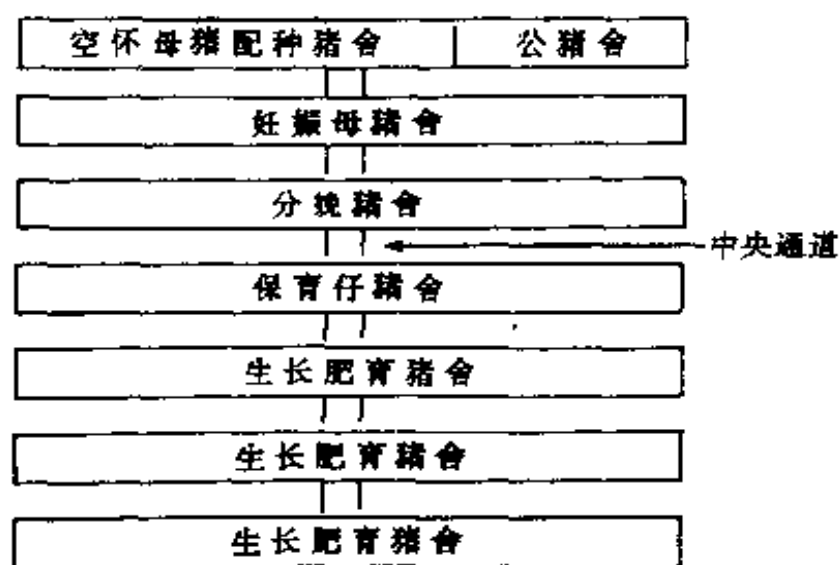 空怀母猪配种猪舍 公猪舍
妊娠母猪舍
分娩猪舍
中央通道
保育仔猪舍
生长肥育猪舍
生长肥育猪舍
生长肥育猪舍